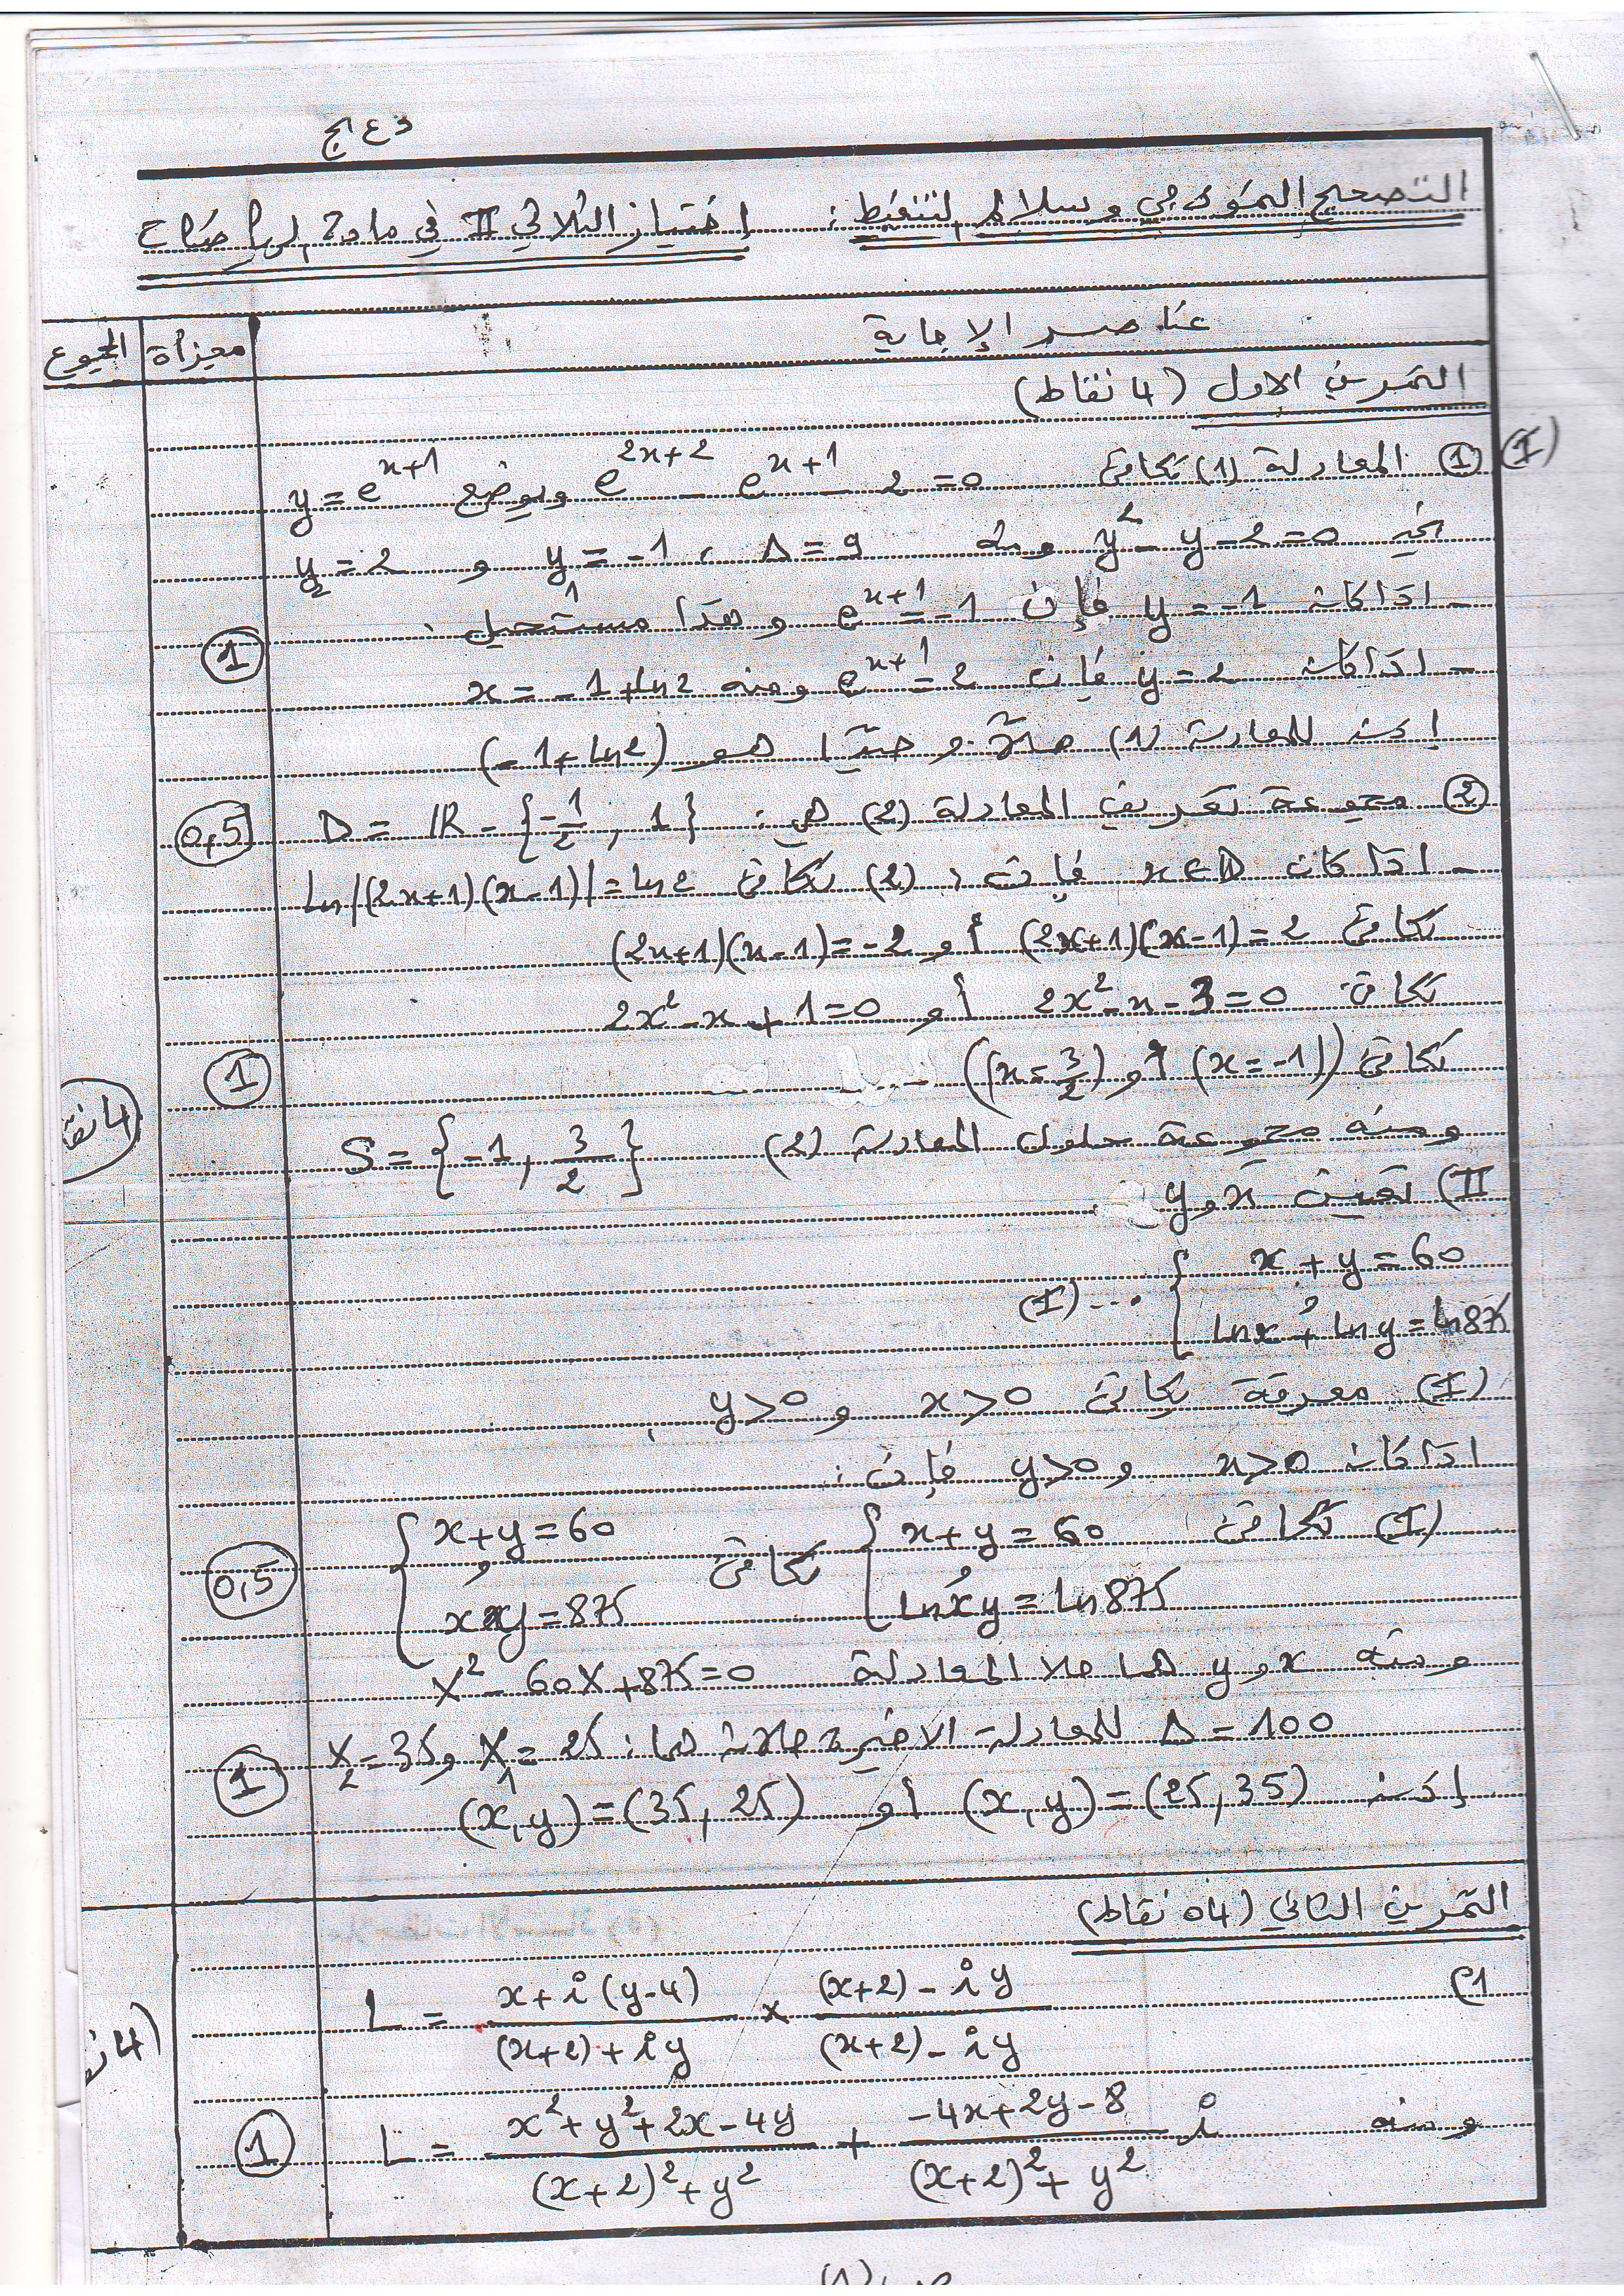 دع بج
التصحيح النموذجي وسلالم التنقيط : إختبار الثلاثي II في مادة الرياضيات
عناصر الإجابة مجزأة المجموع
التمرين الاول (4 نقاط)
I) ① المعادلة (1) تكافئ e^{2x+2} - e^{x+1} - 2 = 0 وبوضع y = e^{x+1}
نجد y² - y - 2 = 0 ومنه Δ = 9 ، y₁ = -1 و y₂ = 2
- اذا كان y = -1 فإن e^{x+1} = -1 وهذا مستحيل .
- اذا كان y = 2 فإن e^{x+1} = 2 ومنه x = -1 + ln2 1
إذن للمعادلة (1) حلا وحيدا هو (-1 + ln2)
② مجموعة تعريف المعادلة (2) هي : D = ℝ - {-1/2 , 1} 0,5
- اذا كان x ∈ D فإن : (2) تكافئ ln|(2x+1)(x-1)| = ln2
تكافئ (2x+1)(x-1) = 2 أو (2x+1)(x-1) = -2
تكافئ 2x² - x - 3 = 0 أو 2x² - x + 1 = 0
تكافئ ((x = -1) أو (x = 3/2)) 1
4 نقـ
ومنه مجموعة حلول المعادلة (2) S = {-1 , 3/2}
II) تعيين x و y
{ x + y = 60
و ... (I)
ln x + ln y = ln 875
(I) معرفة يكافئ x > 0 و y > 0 .
اذا كان x > 0 و y > 0 فإن :
(I) تكافئ { x + y = 60 و ln xy = ln 875 تكافئ { x + y = 60 و x×y = 875 0,5
ومنه x و y هما حلا المعادلة X² - 60X + 875 = 0
Δ = 100 للمعادلة الاخيرة حلان هما : X₁ = 25 و X₂ = 35 1
إذن (x,y) = (25,35) أو (x,y) = (35,25)
التمرين الثاني (04 نقاط)
1) L = (x + i(y-4))/((x+2) + iy) × ((x+2) - iy)/((x+2) - iy)
4 نقـ
ومنه L = (x² + y² + 2x - 4y)/((x+2)² + y²) + (-4x + 2y - 8)/((x+2)² + y²) i 1